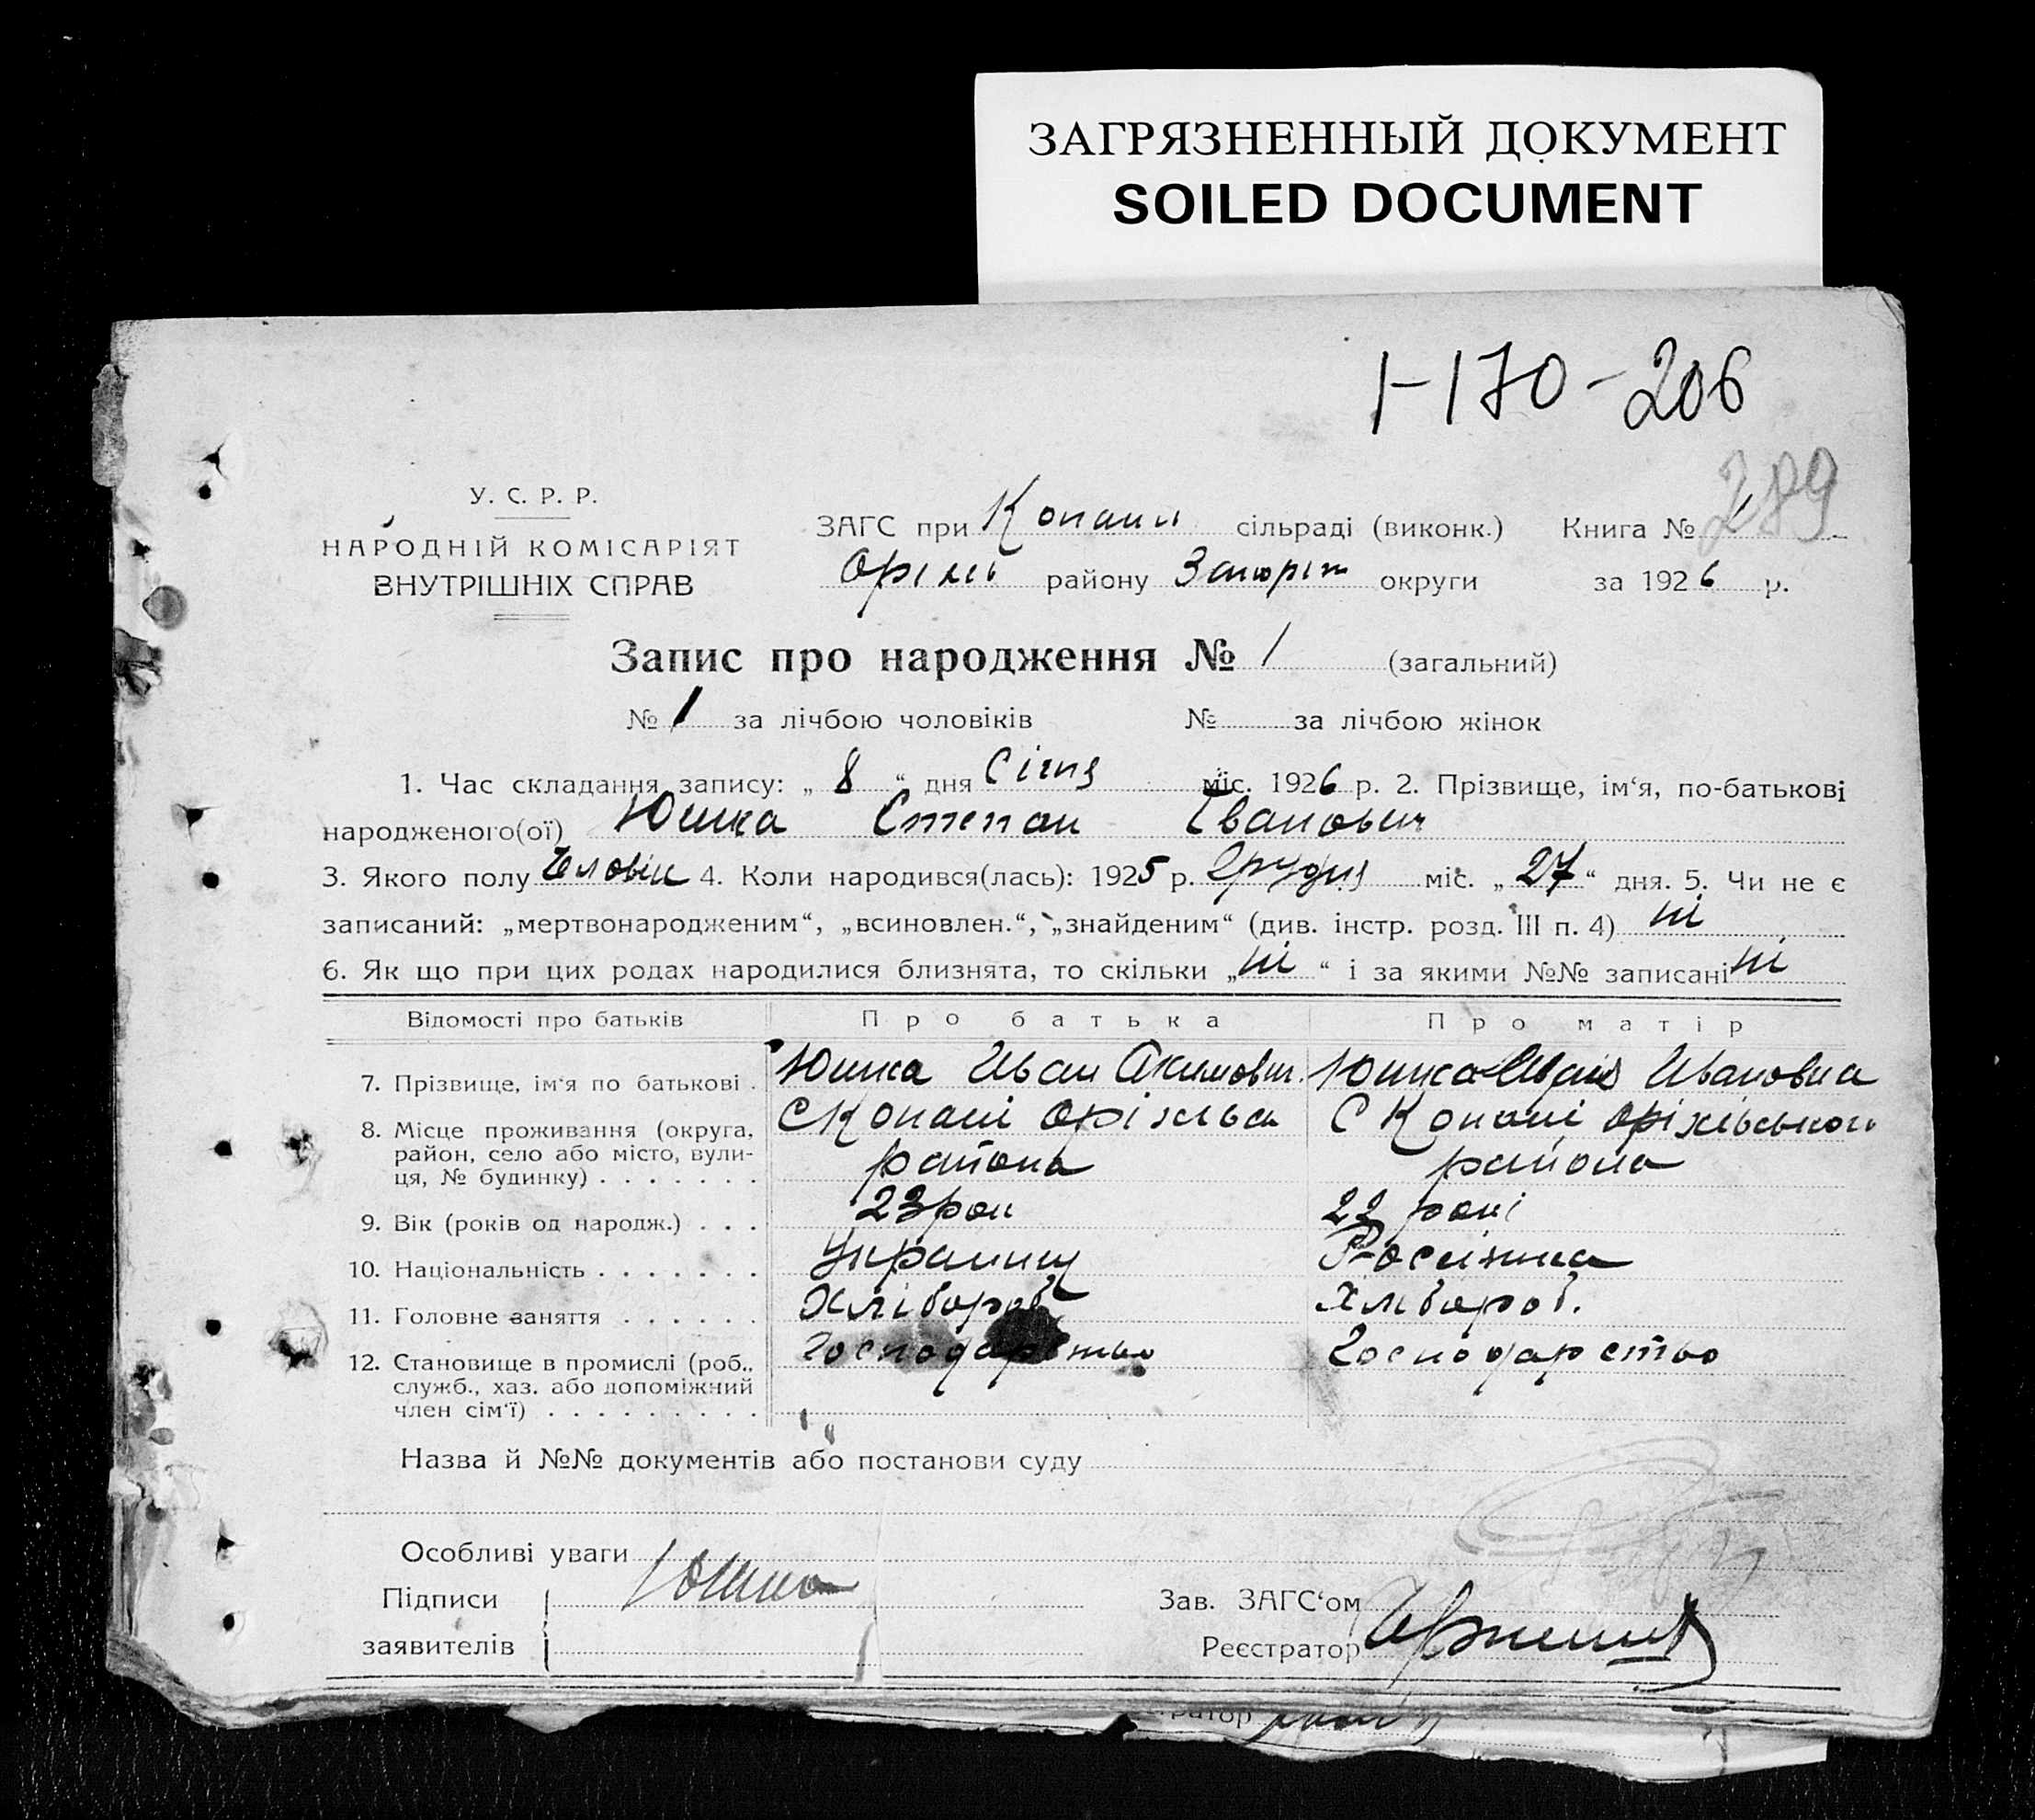 ЗАГРЯЗНЕННЫЙ ДОКУМЕНТ
SOILED DOCUMENT
1-170-206
289
У. С. Р. Р.
НАРОДНІЙ КОМІСАРІЯТ
ВНУТРІШНІХ СПРАВ
ЗАГС при Копани сільраді (виконк.) Книга №
Оріхів району Запоріж округи за 1926 р.
Запис про народження № 1 (загальний)
№ 1 за лічбою чоловіків № за лічбою жінок
1. Час складання запису: „ 8 “ дня Січня міс. 1926 р. 2. Прізвище, ім‘я, по-батькові
народженого(ої) Юшка Степан Іванович
3. Якого полу Чловік 4. Коли народився(лась): 1925 р. Грудня міс. „ 27 “ дня. 5. Чи не є
записаний: „мертвонародженим“, „всиновлен.“, „знайденим“ (див. інстр. розд. III п. 4) ні
6. Як що при цих родах народилися близнята, то скільки „ ні “ і за якими №№ записані ні
Відомості про батьків Про батька Про матір
7. Прізвище, ім‘я по батькові . Юшка Иван Акимович. Юшка Ивановна
8. Місце проживання (округа, С Копані С Копані Оріхівського
район, село або місто, вули- района района
ця, № будинку) . . . . . . .
9. Вік (років од народж.) . . . 23 рок 22 рокі
10. Національність . . . . . . . Украинц Росіянка
11. Головне заняття . . . . . . Хлібороб Хлібороб.
12. Становище в промислі (роб., Господарство Господарство
служб., хаз. або допоміжний
член сім‘ї) . . . . . . . . .
Назва й №№ документів або постанови суду
Особливі уваги
Підписи Юшка Зав. ЗАГС‘ом
заявителів Реєстратор
ратор